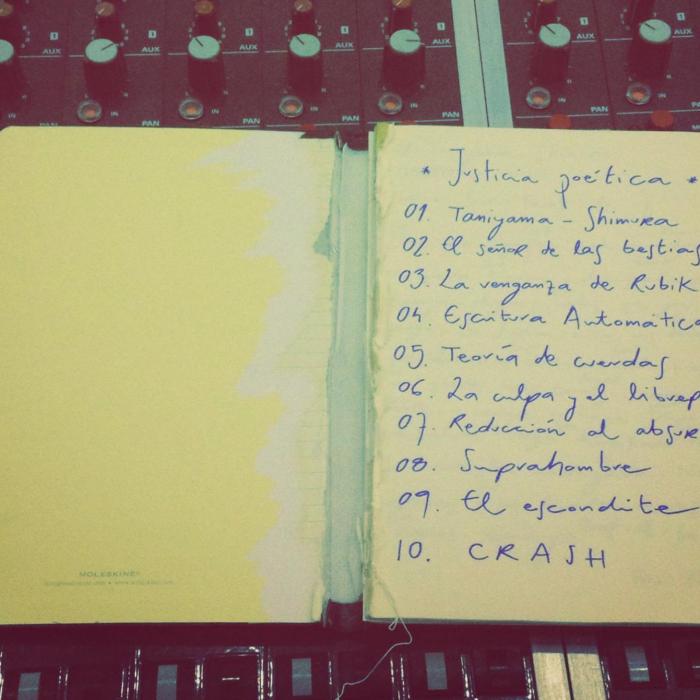 AUX
AUX
AUX
AUX
AUX
AUX
IN
IN
IN
IN
IN
IN
PAN
PAN
PAN
PAN
PAN
PAN
* Justicia poética *
01. Taniyama - Shimura
02. El señor de las bestias
03. La venganza de Rubik
04. Escritura Automática
05. Teoría de cuerdas
06. La culpa y el librep
07. Reducción al absur
08. Suprahombre
09. El escondite
10. CRASH
MOLESKINE®